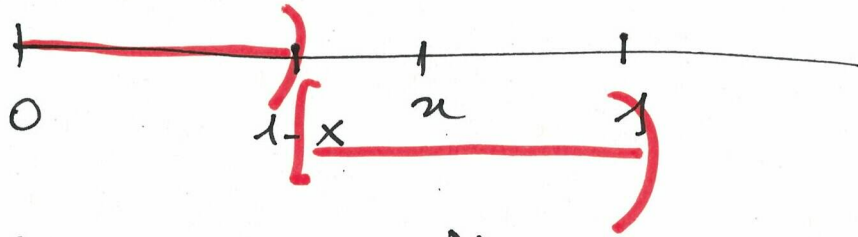 0 1-x x 1